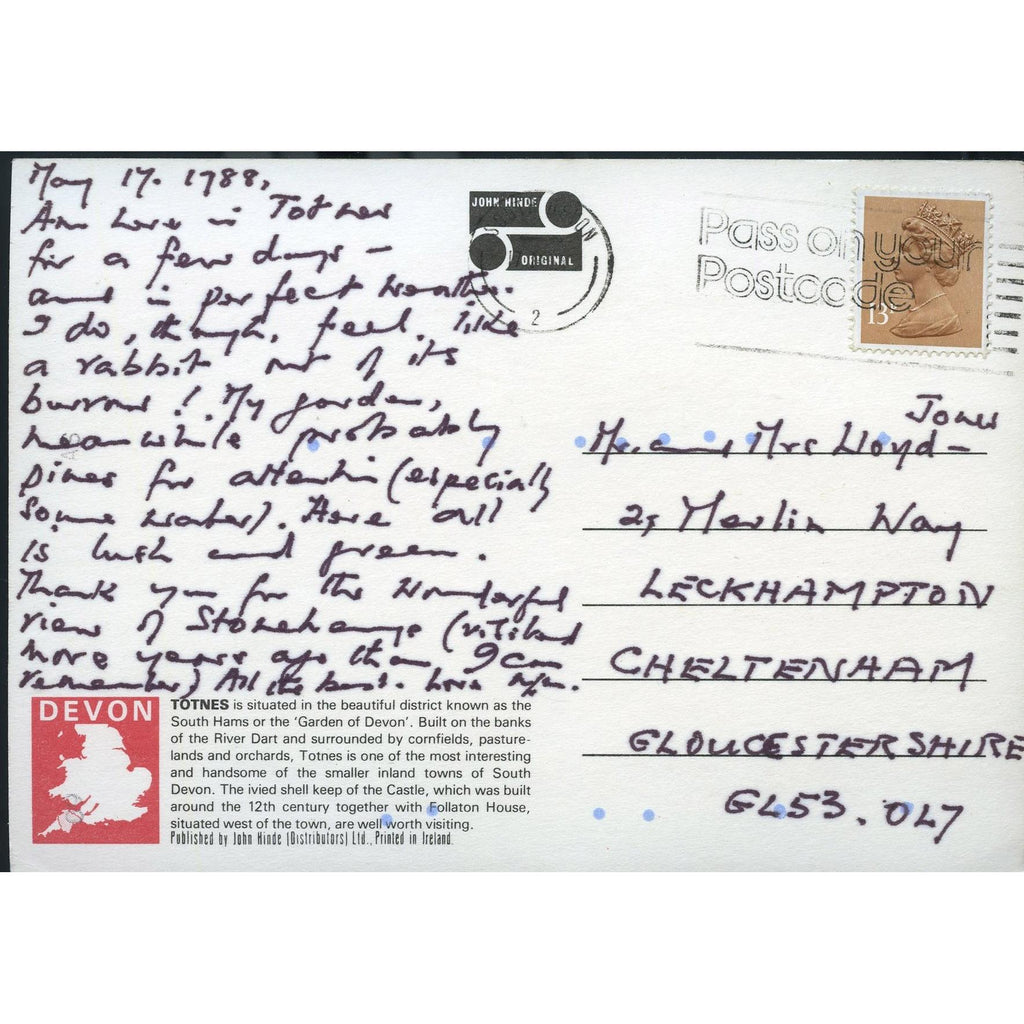 May 17. 1988,
Am here in Totnes
for a few days -
and in perfect weather.
I do, though, feel like
a rabbit out of its
burrow! My garden,
meanwhile probably
pines for attention (especially
some water). Here all
is lush and green.
Thank you for the wonderful
view of Stonehenge (visited
more years ago than I can
remember) All the best. Love
JOHN HINDE
ORIGINAL
ON
2
Pass on your
Postcode
13
Mr. and Mrs Lloyd-Jones
2, Merlin Way
LECKHAMPTON
CHELTENHAM
GLOUCESTERSHIRE
GL53. 0L7
DEVON
TOTNES is situated in the beautiful district known as the
South Hams or the 'Garden of Devon'. Built on the banks
of the River Dart and surrounded by cornfields, pasture-
lands and orchards, Totnes is one of the most interesting
and handsome of the smaller inland towns of South
Devon. The ivied shell keep of the Castle, which was built
around the 12th century together with Follaton House,
situated west of the town, are well worth visiting.
Published by John Hinde (Distributors) Ltd., Printed in Ireland.